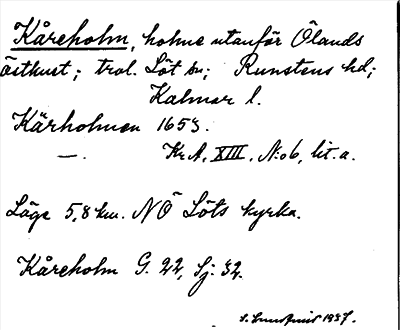 Kåreholm, holme utanför Ölands
östkust; trol. Löt sn; Runstens hd;
Kalmar l.
Kårholmen 1653.
—. Kr A, XIII, N:o 6, lit. a.
Läge 5,8 km. NÖ Löts kyrka.
Kåreholm G. 22, Sj: 32.
1937.